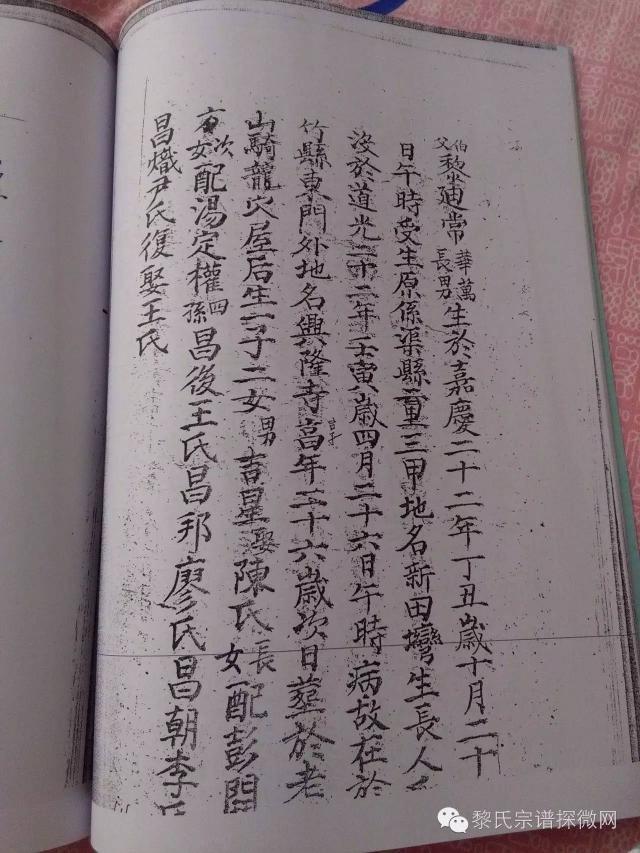 伯父黎廸常華萬長男生於嘉慶二十二年丁丑歲十月二十
日午時受生原係渠縣三甲地名新田灣生長人
沒於道光二十二年壬寅歲四月二十六日午時病故在於
竹縣東門外地名興隆寺高年二十六歲次日葬於老
山騎龍穴屋后生一子二女男吉星娶陳氏長女配彭門
次女配湯定權四孫昌後王氏昌邦廖氏昌朝李氏
昌熾尹氏復娶王氏
黎氏宗谱探微网